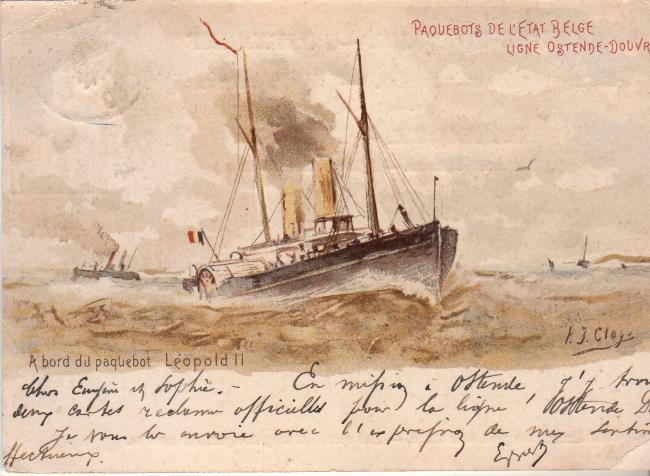 PAQUEBOTS DE L'ETAT BELGE
LIGNE OSTENDE-DOUVR
P. J. Clays
A bord du paquebot Léopold II
Chers Eugénie et Sophie. - En mission à Ostende, j'y trou
deux cartes reclame officielles pour la ligne Ostende D
Je vous les envoie avec l'expression de mes sentim
ffectueux.